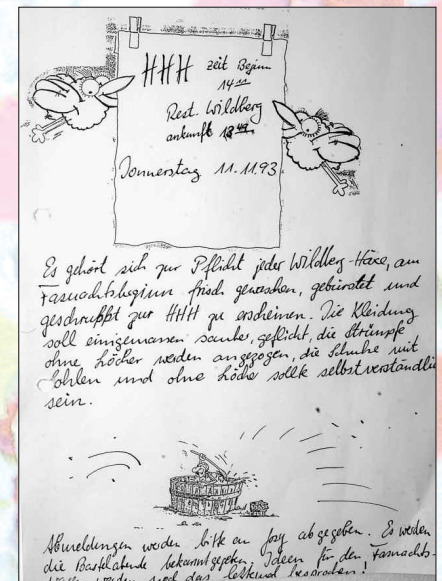 HHH zeit Beginn
14 11
Rest. Wildberg
ankunft
Donnerstag 11.11.93
Es gehört sich zur Pflicht jeder Wildberg-Häxe, am
Fasnachtsbeginn frisch gewaschen, gebürstet und
geschruppt zur HHH zu erscheinen. Die Kleidung
soll einigermassen sauber, geflickt, die Strümpfe
ohne Löcher werden angezogen, die Schuhe mit
Sohlen und ohne Löcher sollte selbstverständlich
sein.
Abmeldungen werden bitte an Josy abgegeben. Es werden
die Bastelabende bekanntgegeben, Ideen für den Fasnachts-
werden noch das besprochen!